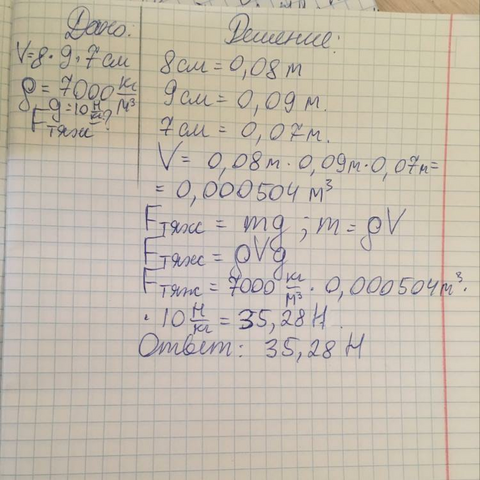 Дано:
V=8·9·7см
ρ = 7000 кг/м³
g=10 Н/кг
Fтяж?
Решение:
8см = 0,08 м
9см = 0,09 м.
7см = 0,07м.
V = 0,08м·0,09м·0,07м=
= 0,000504 м³
Fтяж = mg ; m = ρV
Fтяж = ρVg
Fтяж = 7000 кг/м³ · 0,000504м³·
·10 Н/кг = 35,28 Н.
Ответ: 35,28 Н